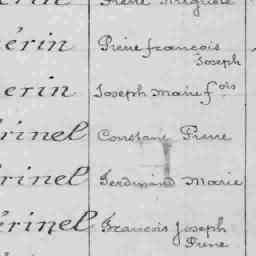 érin Pierre françois
Joseph
erin Joseph Marie fois
rinel Constant Pierre
rinel Ferdinand Marie
érinel François Joseph
Pierre